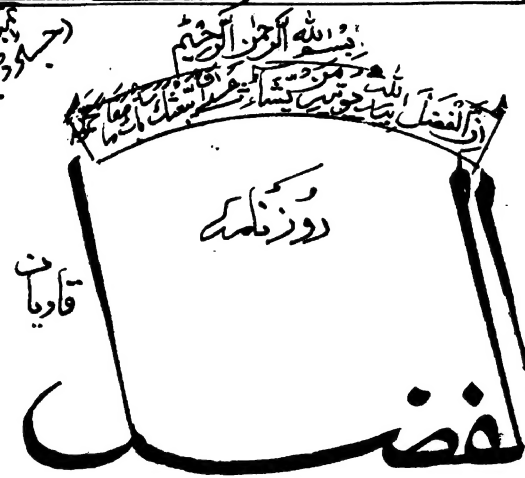 بسم الله الرحمن الرحیم
ان الفضل بيد الله يؤتيه من يشاء عسى ان يبعثك ربك مقاما محمودا
روزنامہ
قادیان
الفضل